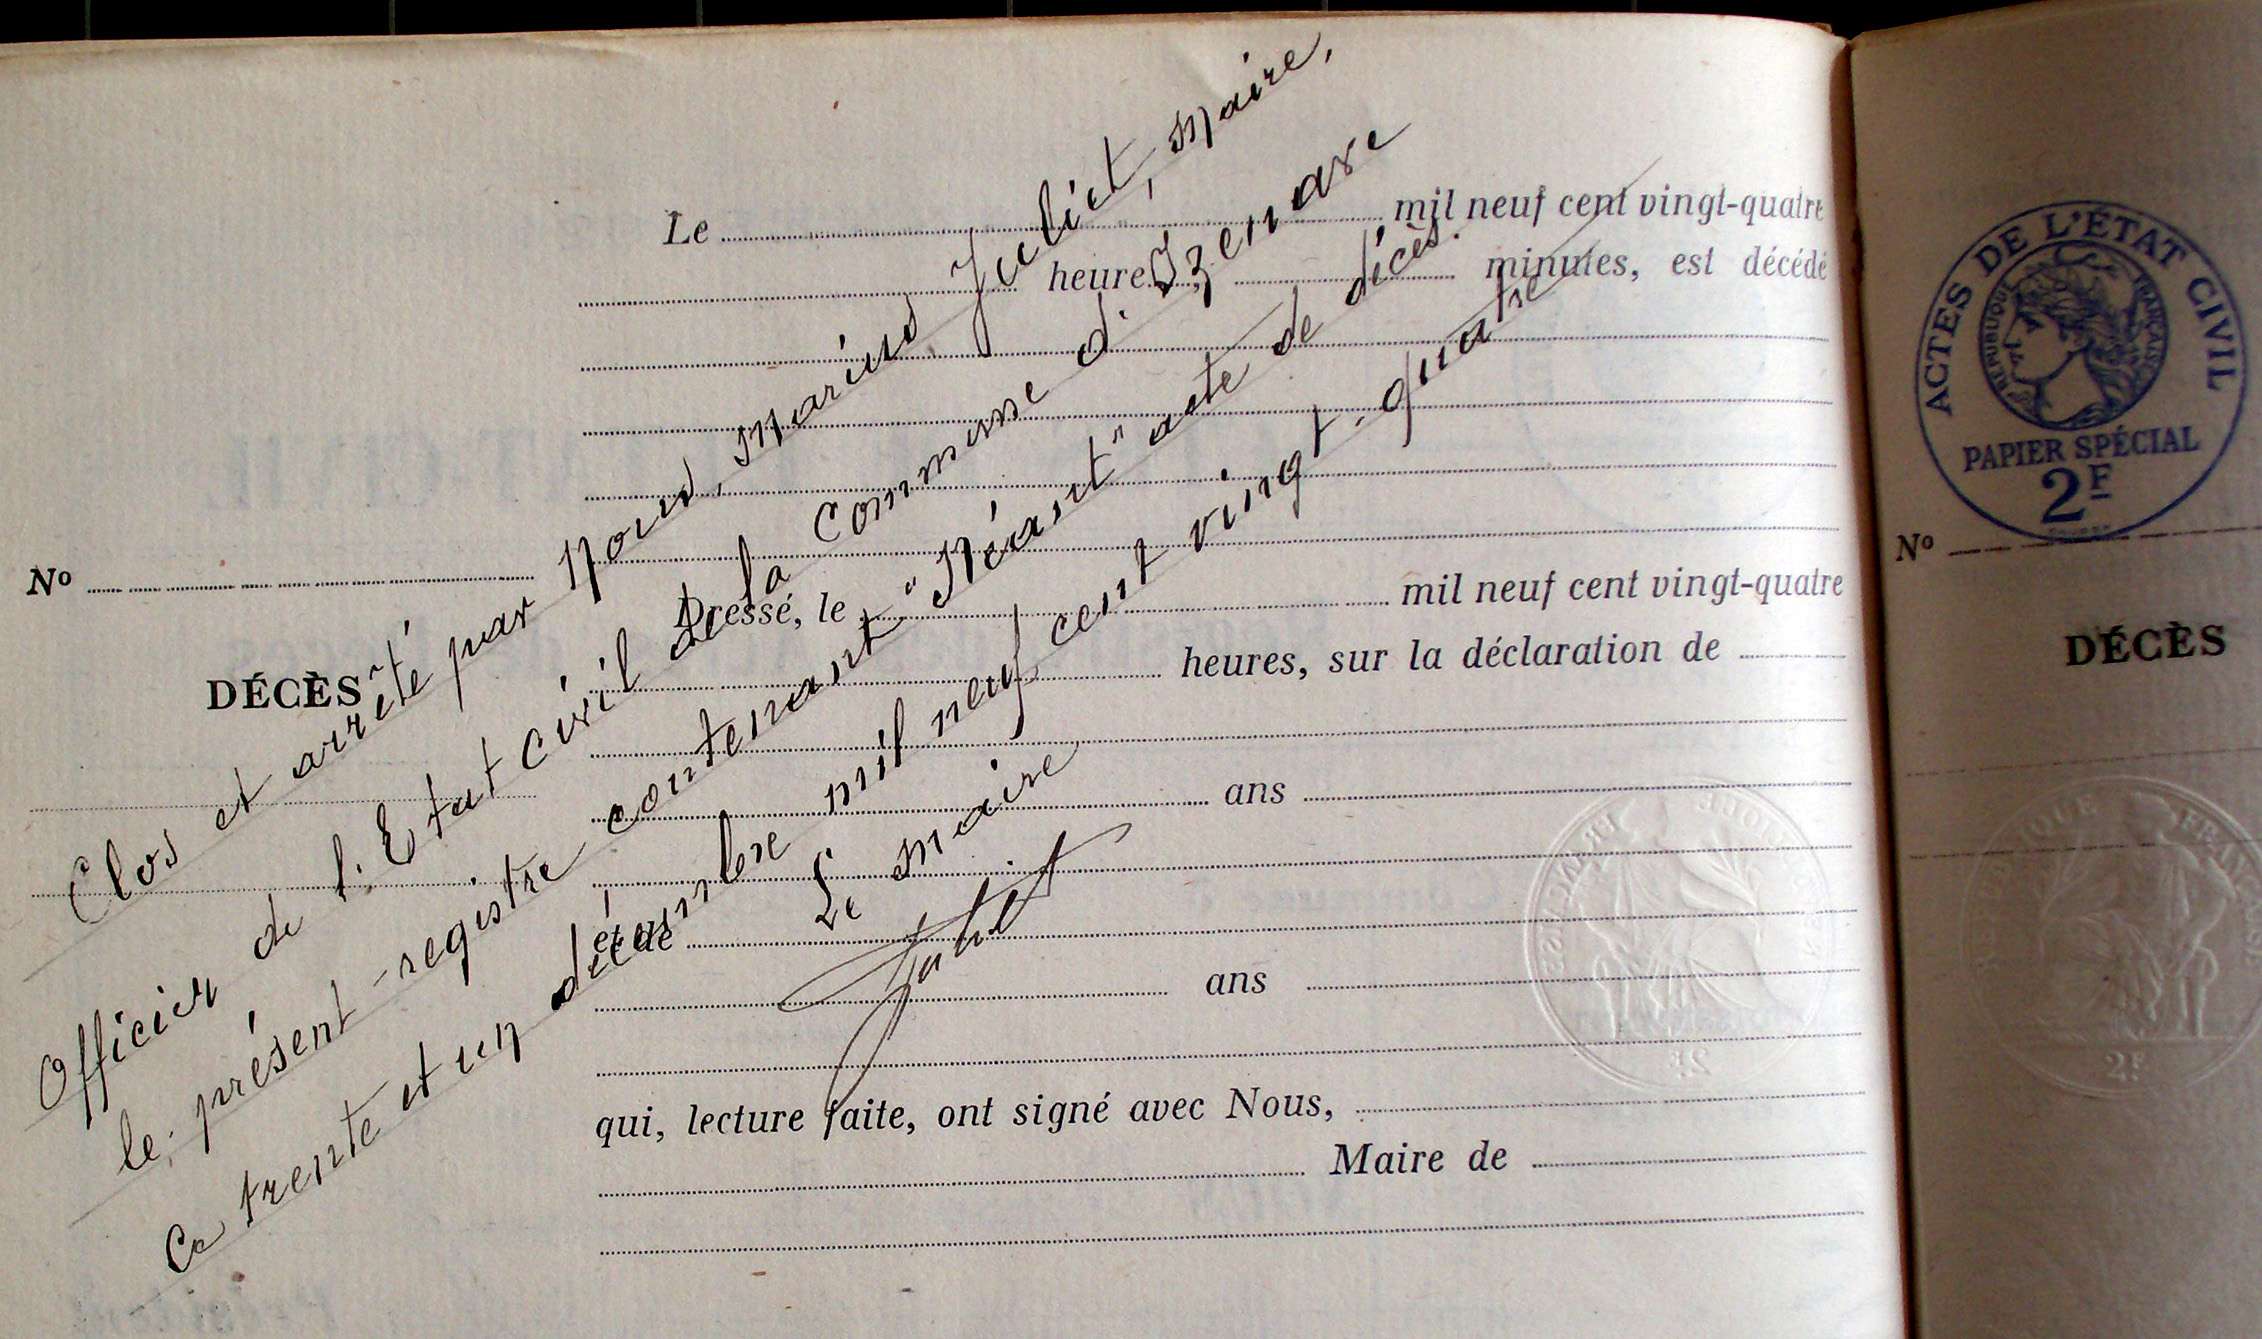 Le mil neuf cent vingt-quatre
heure minutes, est décédé
No
DÉCÈS
Dressé, le mil neuf cent vingt-quatre
heures, sur la déclaration de
ans
et de
ans
qui, lecture faite, ont signé avec Nous,
Maire de
Clos et arrêté par Nous, Marius Juliet, Maire,
Officier de l'Etat civil de la Commune d'Izenave
le présent registre contenant "Néant" acte de décès.
Ce trente et un décembre mil neuf cent vingt-quatre
Le Maire
Juliet
ACTES DE L'ÉTAT CIVIL
RÉPUBLIQUE FRANÇAISE
PAPIER SPÉCIAL
2F
No
DÉCÈS
RÉPUBLIQUE FRANÇAISE
2F